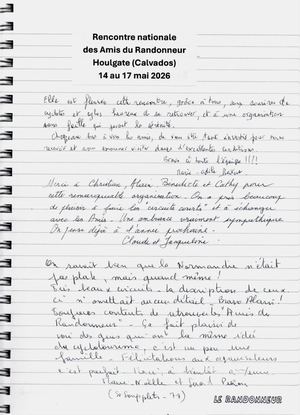 Rencontre nationale
des Amis du Randonneur
Houlgate (Calvados)
14 au 17 mai 2026
Elle est fleurie cette rencontre, grâce à tous, aux sourires des
cyclotes et cyclos heureux de se retrouver, et à une organisation
sans faille qui permet la sérénité.
Chapeau bas à vous, de vous être tant investis pour nous
Merci à toute l'équipe !!!!
Merci à Christian, Alain, Bénédicte et Cathy pour
cette remarquable organisation. On a pris beaucoup
de plaisir à faire les circuits courts et à échanger
avec les Amis. Une ambiance vraiment sympathique
On pense déjà à l'année prochaine.
Claude et Jacqueline
On savait bien que la Normandie n'était
pas plate, mais quand même !
Très beaux circuits - la description de ceux
ci n'omettait aucun détail. Bravo Alain !
Toujours contents de retrouver les "Amis du
Randonneur" - Ça fait plaisir de
voir des gens qui ont la même idée
du cyclotourisme, c'est un peu une
famille - Félicitations aux organisateurs
c'est parfait. Merci, à bientôt
Marie-Noëlle et
LE RANDONNEUR